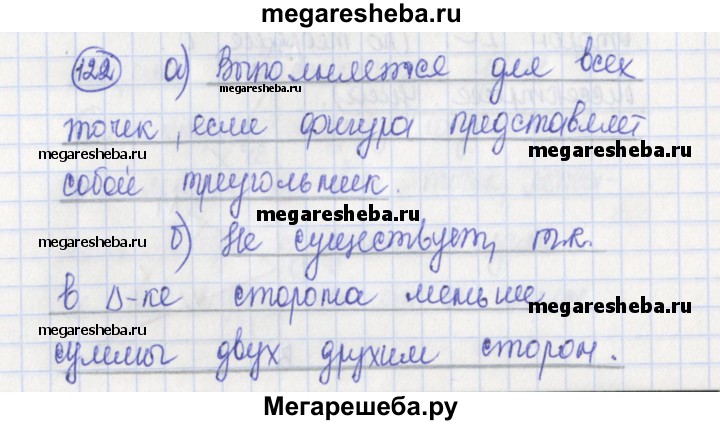 megaresheba.ru
122 а) Выполняется для всех
megaresheba.ru
точек, если фигура представляет
megaresheba.ru megaresheba.ru
собой треугольник.
megaresheba.ru
megaresheba.ru б) Не существует, т.к.
в Δ-ке сторона меньше
megaresheba.ru megaresheba.ru
суммы двух других сторон.
Мегарешеба.ру